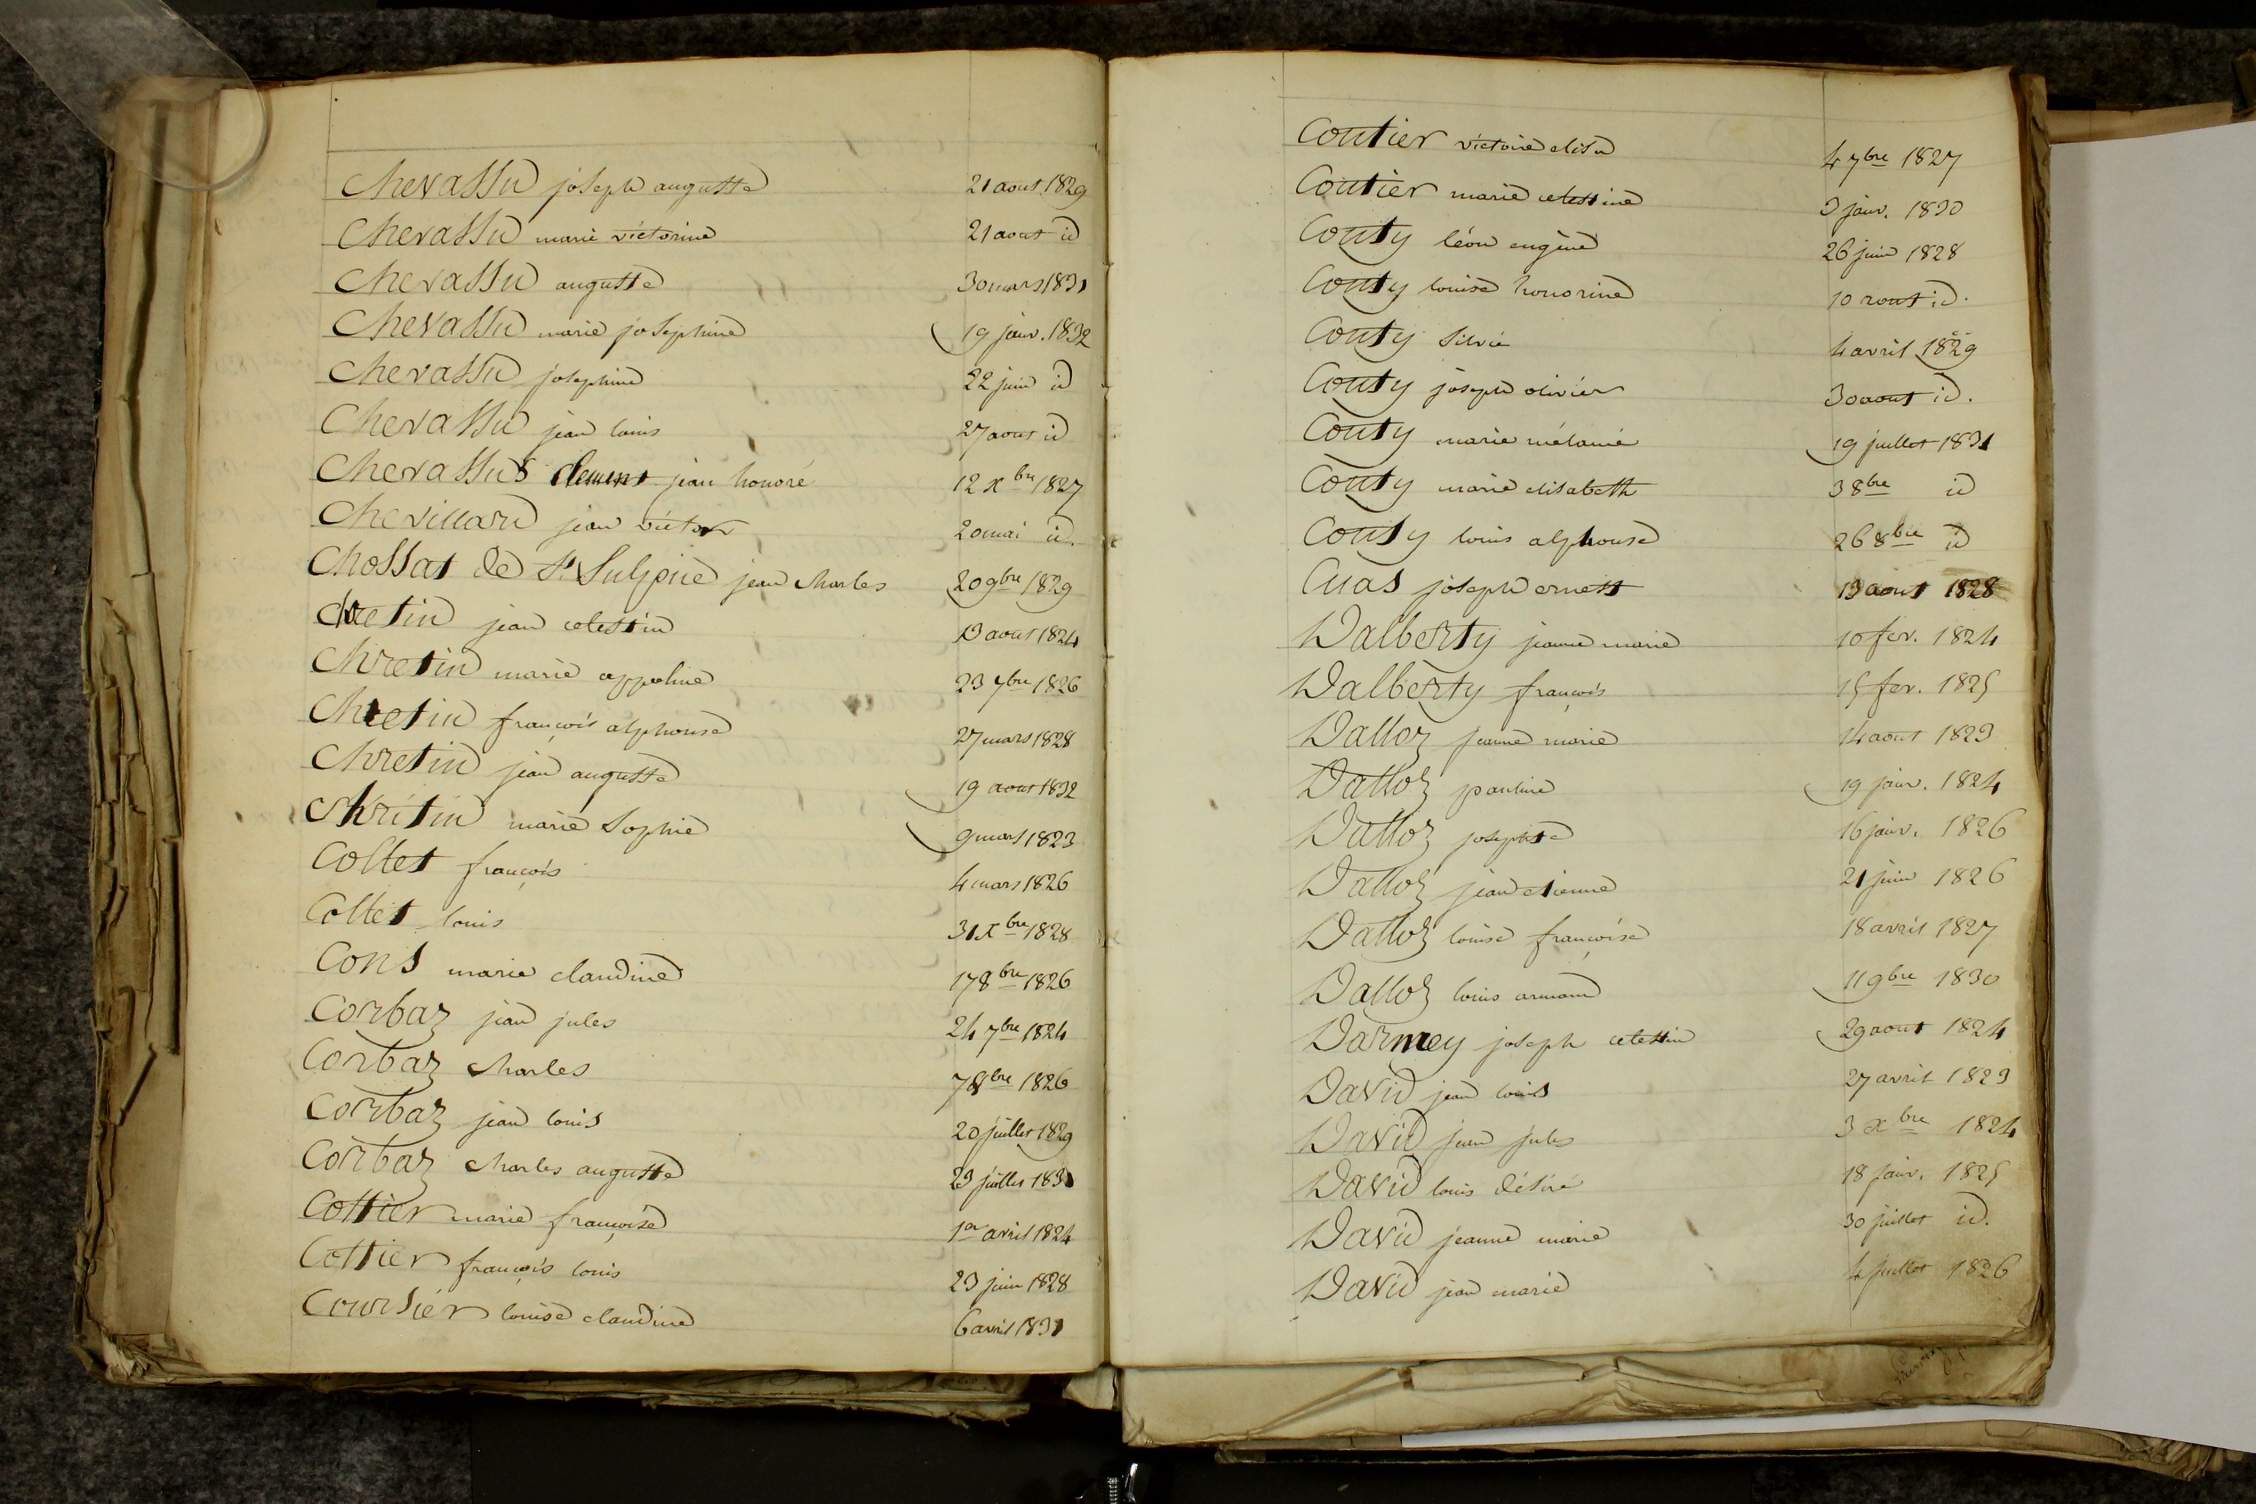 Chevassu joseph auguste 21 aout 1829
Chevassu marie victorine 21 aout id
Chevassu auguste 30 mars 1831
Chevassu marie josephine 19 janv. 1832
Chevassu josephine 22 juin id
Chevassu jean louis 27 aout id
Chevassus clement jean honoré 12 xbre 1827
Chevillard jean victor 20 mai id.
Chossat de St. Sulpice jean charles 20 9bre 1829
Chretin jean celestin 13 aout 1824
Chretin marie appoline 23 7bre 1826
Chretin françois alphonse 27 mars 1828
Chretin jean auguste 19 aout 1832
Chritin marie Sophie 9 mars 1823
Collet françois 4 mars 1826
Collet louis 31 xbre 1828
Cons marie claudine 17 8bre 1826
Corbaz jean jules 24 7bre 1824
Corbaz charles 7 8bre 1826
Corbaz jean louis 20 juillet 1829
Corbaz charles auguste 23 juillet 1831
Cottier marie françoise 1er avril 1824
Cottier françois louis 23 juin 1828
Coursier louise claudine 6 avril 1831
Coutier victoire elisa 4 7bre 1827
Coutier marie celestine 3 janv. 1830
Couty léon eugène 26 juin 1828
Couty louise honorine 10 aout id.
Couty Silvie 4 avril 1829
Couty joseph olivier 30 aout id.
Couty marie mélanie 19 juillet 1831
Couty marie elisabeth 3 8bre id
Couty louis alphonse 26 8bre id
Cuas joseph ernest 13 aout 1828
Dalberty jeanne marie 10 fev. 1824
Dalberty françois 15 fev. 1825
Dalloz jeanne marie 14 aout 1823
Dalloz pauline 19 janv. 1824
Dalloz josephte 16 janv. 1826
Dalloz jean etienne 21 juin 1826
Dalloz louise françoise 18 avril 1827
Dalloz louis armand 11 9bre 1830
Darmey joseph celestin 29 aout 1824
David jean louis 27 avril 1823
David jean jules 3 xbre 1824
David louis désiré 18 janv. 1825
David jeanne marie 30 juillet id.
David jean marie 4 juillet 1826